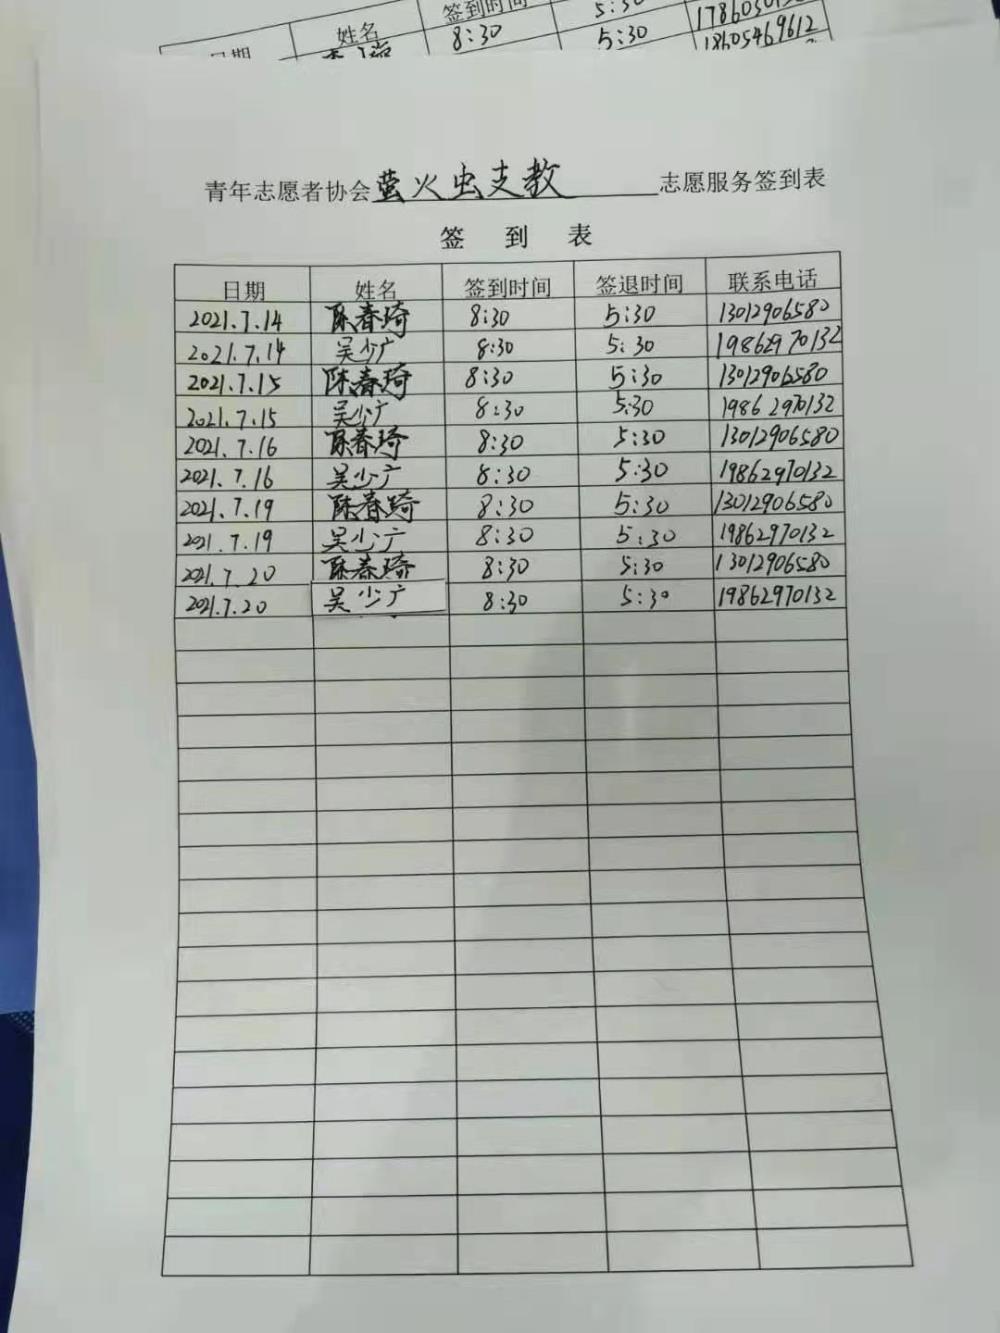 签到时间 5:30
姓名 8:30 5:30 18605469612
日期
青年志愿者协会萤火虫支教志愿服务签到表
签 到 表
日期 姓名 签到时间 签退时间 联系电话
2021.7.14 陈春琦 8:30 5:30 13012906580
2021.7.14 吴少广 8:30 5:30 19862970132
2021.7.15 陈春琦 8:30 5:30 13012906580
2021.7.15 吴少广 8:30 5:30 19862970132
2021.7.16 陈春琦 8:30 5:30 13012906580
2021.7.16 吴少广 8:30 5:30 19862970132
2021.7.19 陈春琦 8:30 5:30 13012906580
2021.7.19 吴少广 8:30 5:30 19862970132
2021.7.20 陈春琦 8:30 5:30 13012906580
2021.7.20 吴少广 8:30 5:30 19862970132